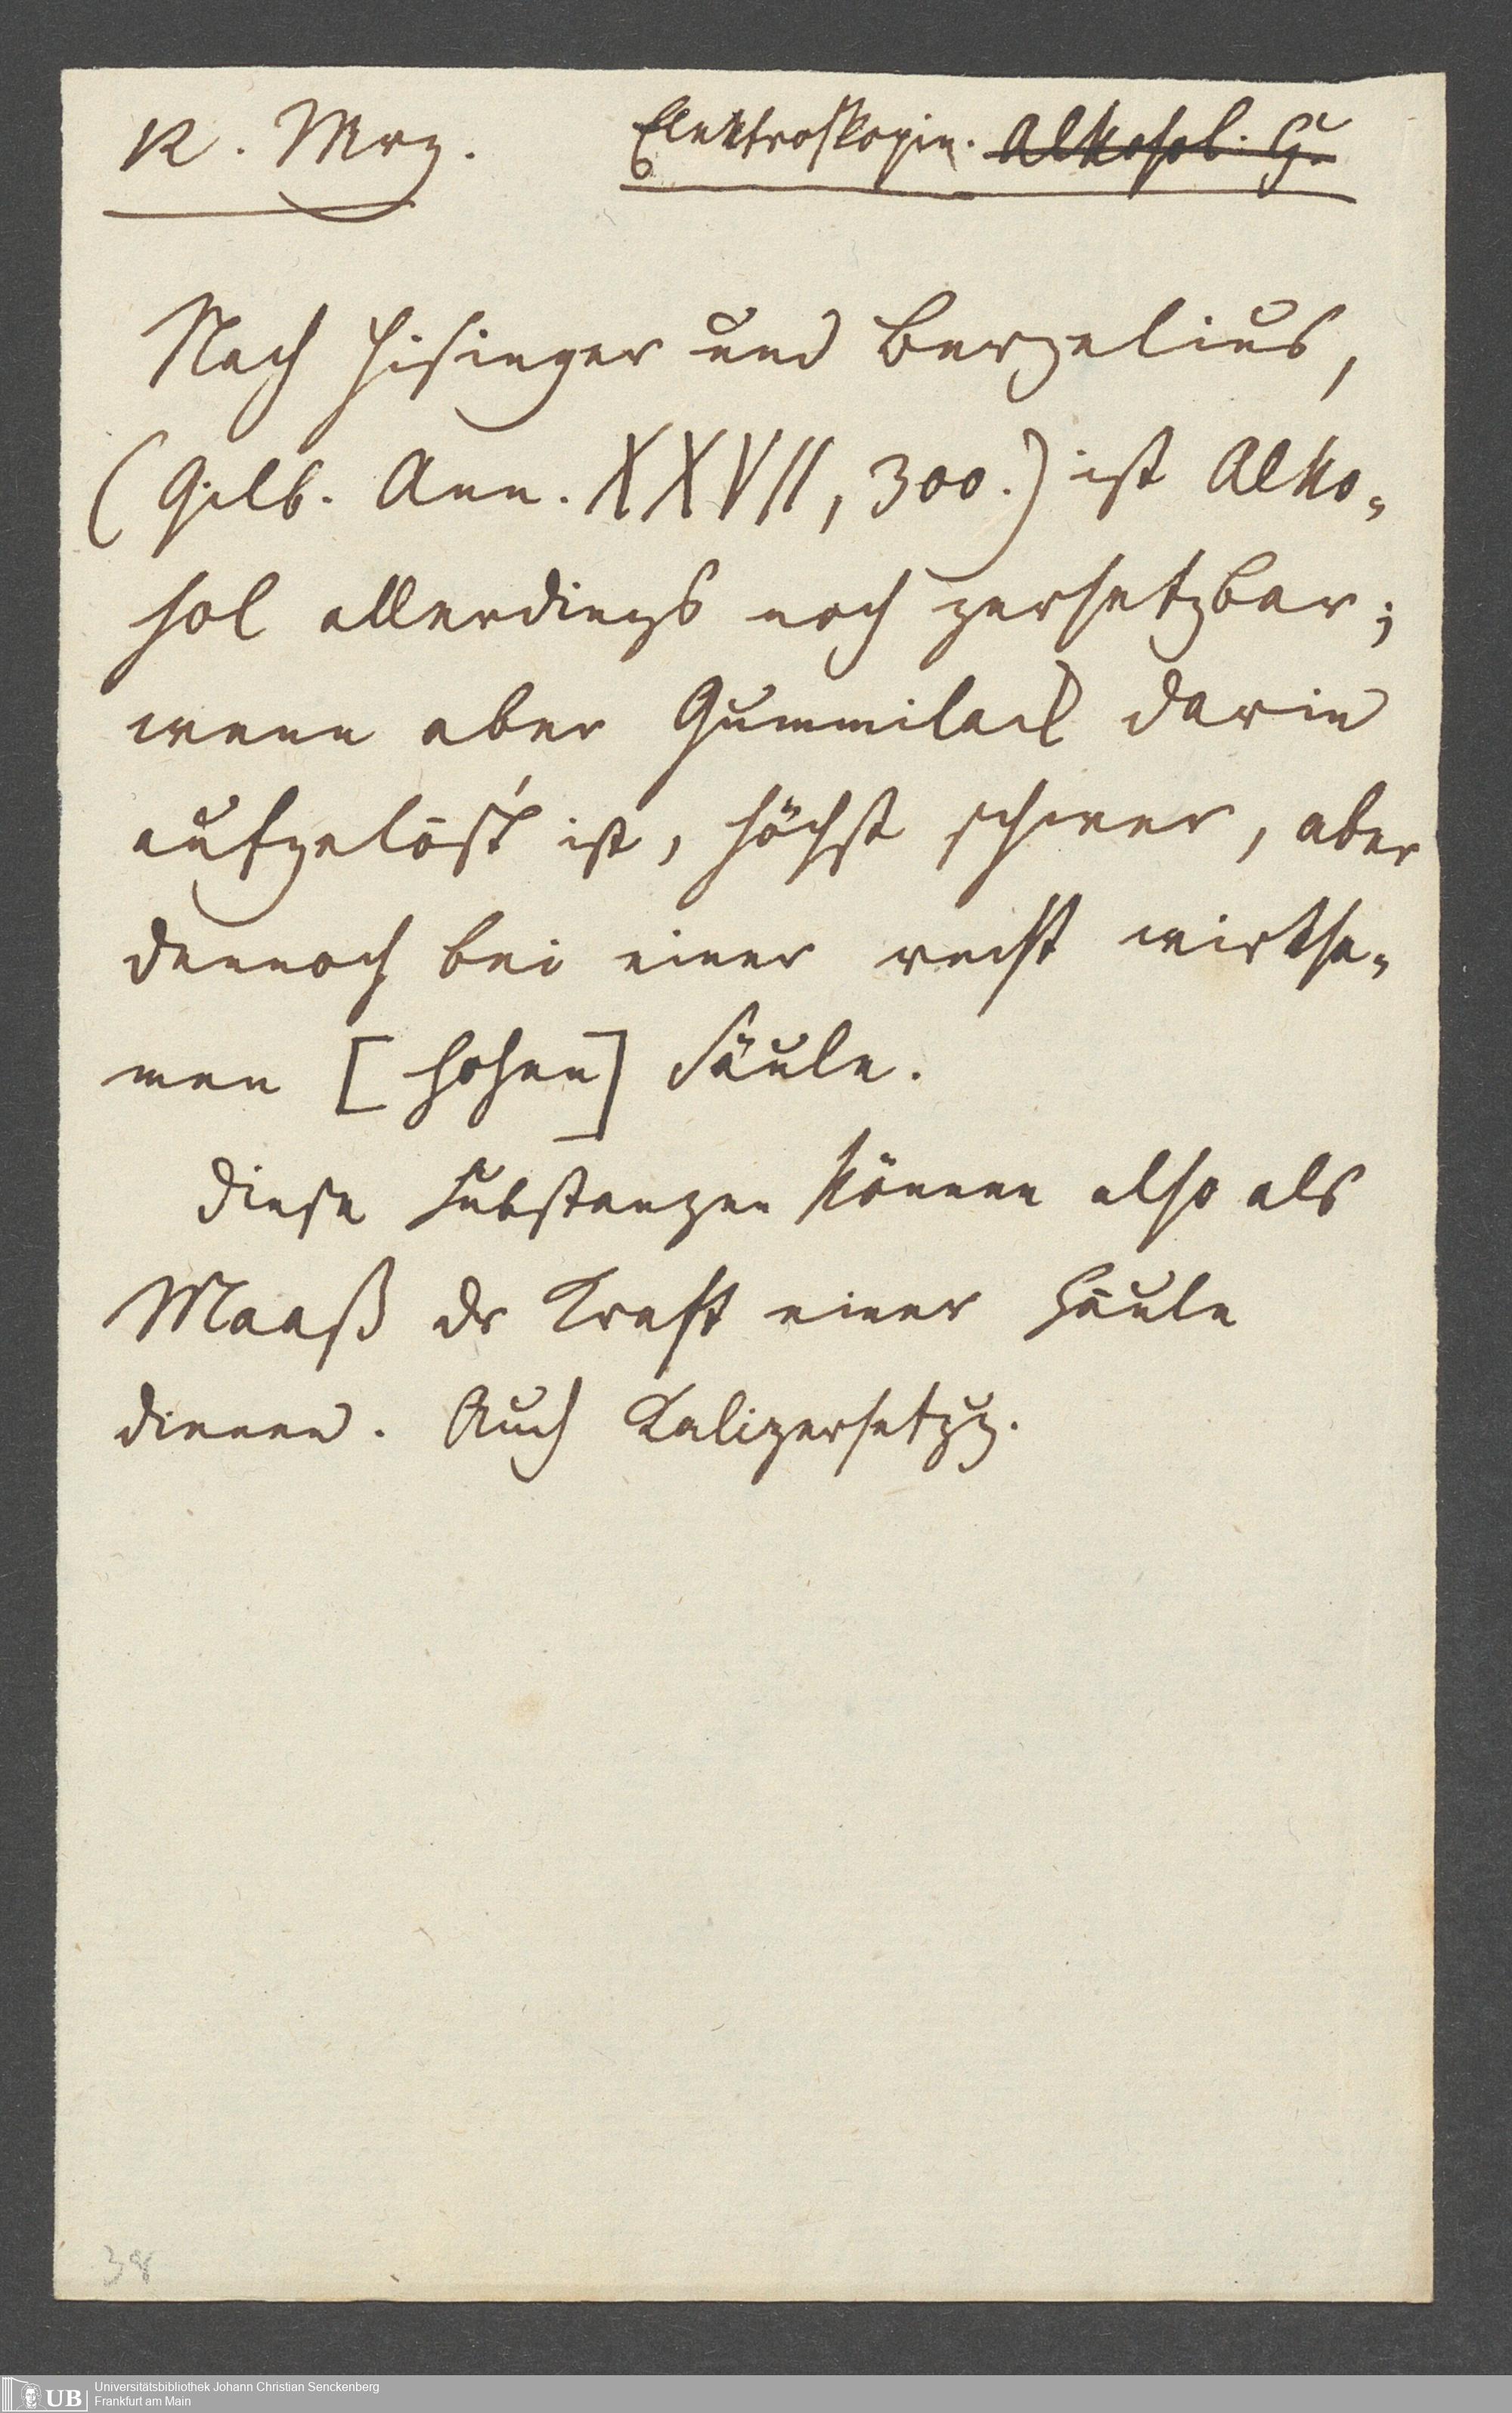 R. Mrz. Elektroskopie. Alkohol. Gu
Nach Hisinger und Berzelius,
(Gilb. Ann. XXVII, 300.) ist Alko-
hol allerdings noch zersetzbar;
wenn aber Gummilack darin
aufgelöst ist, höchst schwer, aber
dennoch bei einer recht wirksa-
men [hohen] Säule.
Diese Substanzen können also als
Maaß dr Kraft einer Säule
dienen. Auch Kalizersetzg.
38
UB Universitätsbibliothek Johann Christian Senckenberg
Frankfurt am Main